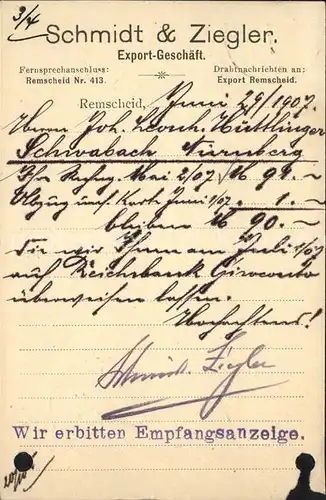 3/4
Schmidt & Ziegler.
Export-Geschäft.
Fernsprechanschluss:
Remscheid Nr. 413.
Drahtnachrichten an:
Export Remscheid.
Remscheid, Juni 29/1907.
Herrn Joh. Leonh. Hüttlinger
Schwabach Nürnberg
Mai 2/07 M
Abzug Karte Juni 1/07 " 1.–
bleiben M 90.–
Die wir Ihnen am Juli 1/07
auf Reichsbank Giroconto
überweisen lassen.
Hochachtend!
Schmidt & Ziegler
Wir erbitten Empfangsanzeige.